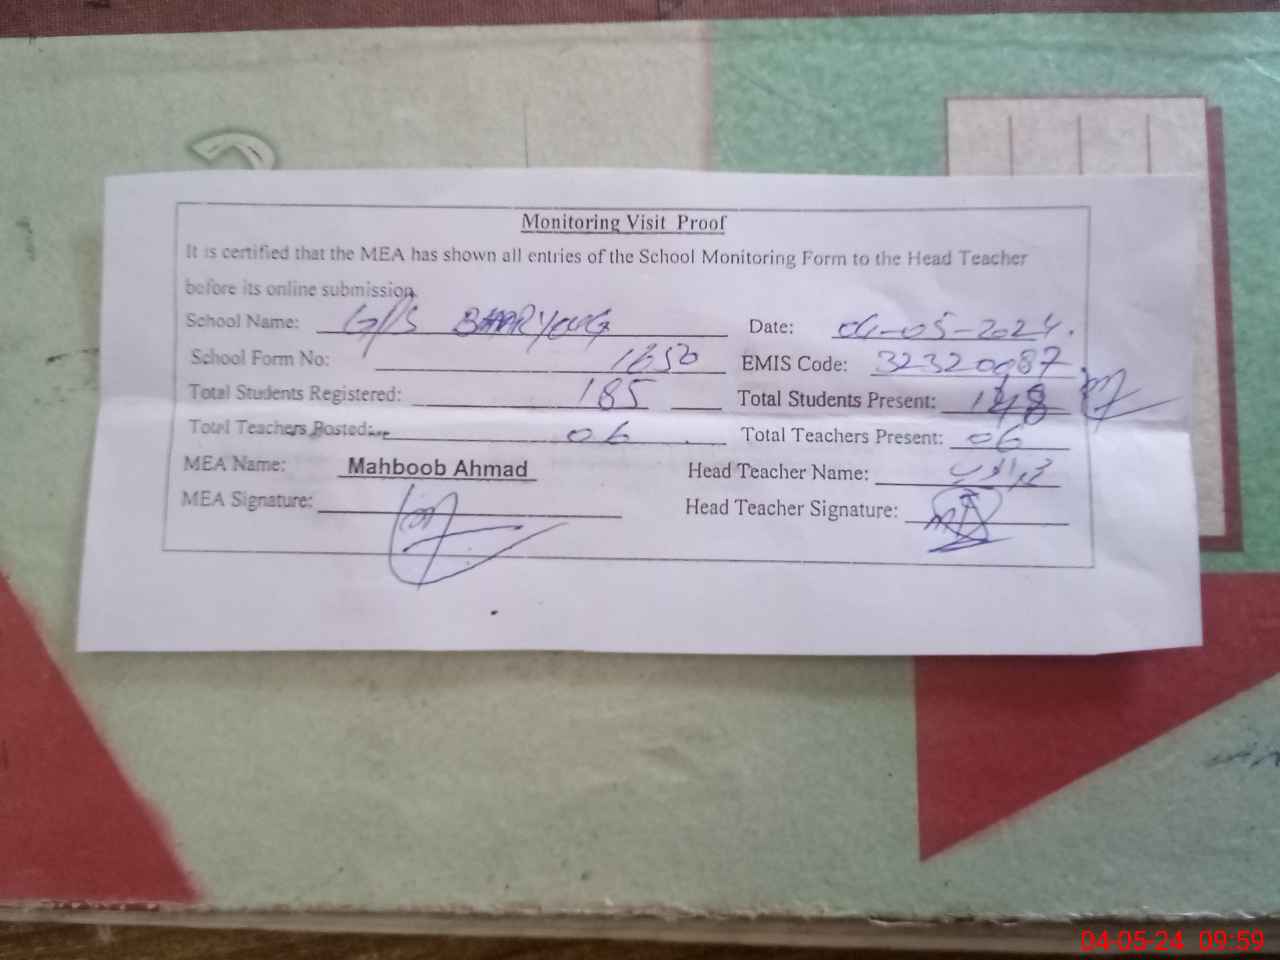 Monitoring Visit Proof
It is certified that the MEA has shown all entries of the School Monitoring Form to the Head Teacher
before its online submission.
School Name: G/PS Date: 04-05-2024.
School Form No: 1650 EMIS Code: 32320087
Total Students Registered: 185 Total Students Present: 148
Total Teachers Posted: 06 Total Teachers Present: 06
MEA Name: Mahboob Ahmad Head Teacher Name:
MEA Signature: Head Teacher Signature:
04-05-24 09:59